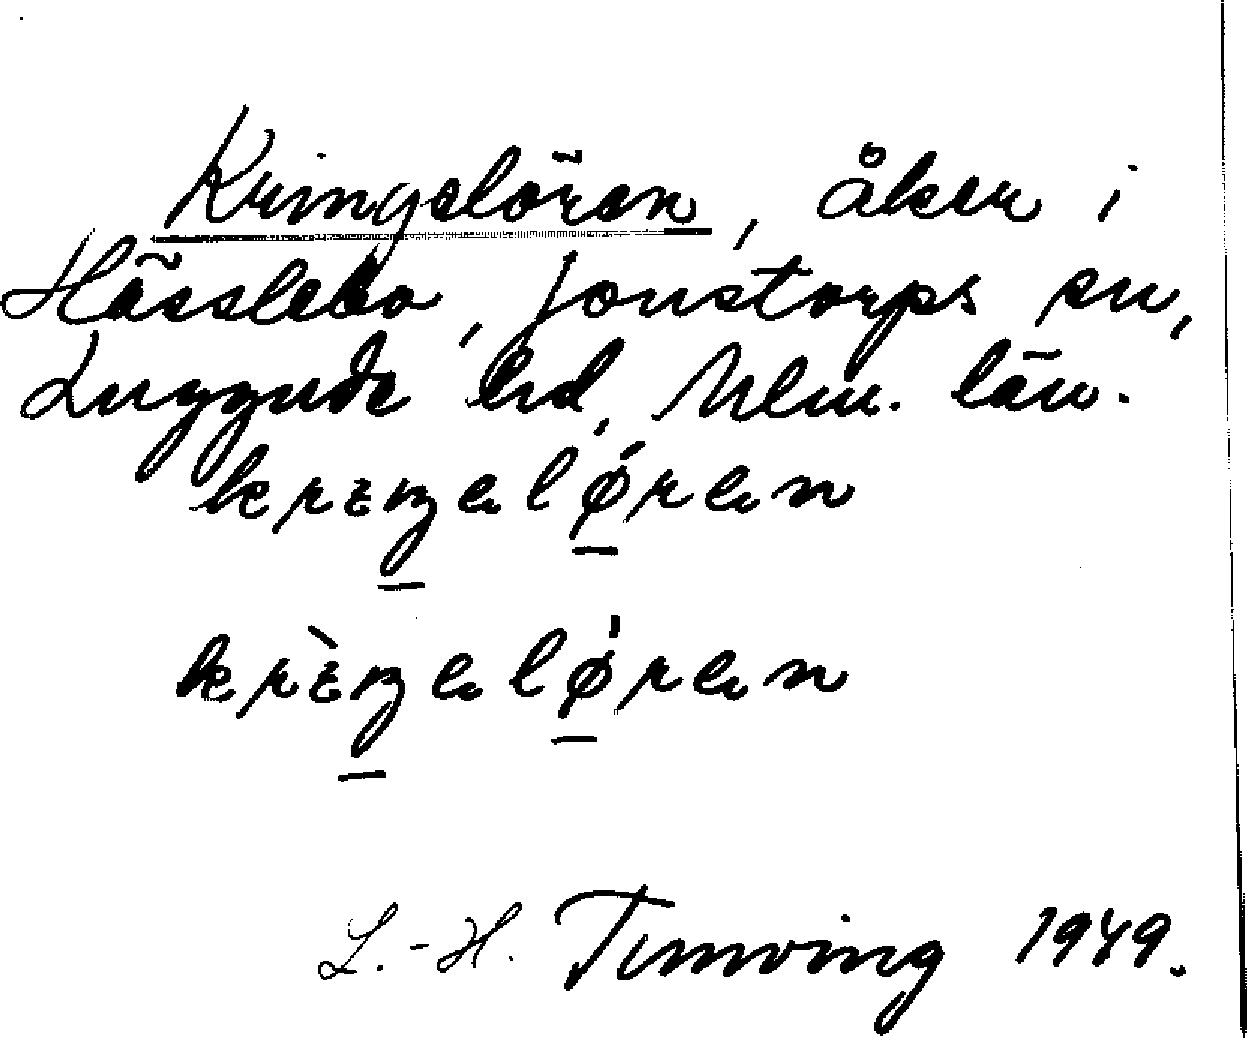 Kringelören, åker i
Hässlebo, Jonstorps sn,
Luggude hd, Mlm. län.
krɪŋəlǿ̠rən
krɪ̀ŋəlǿ̠rən
L.-H. Tunving 1949.